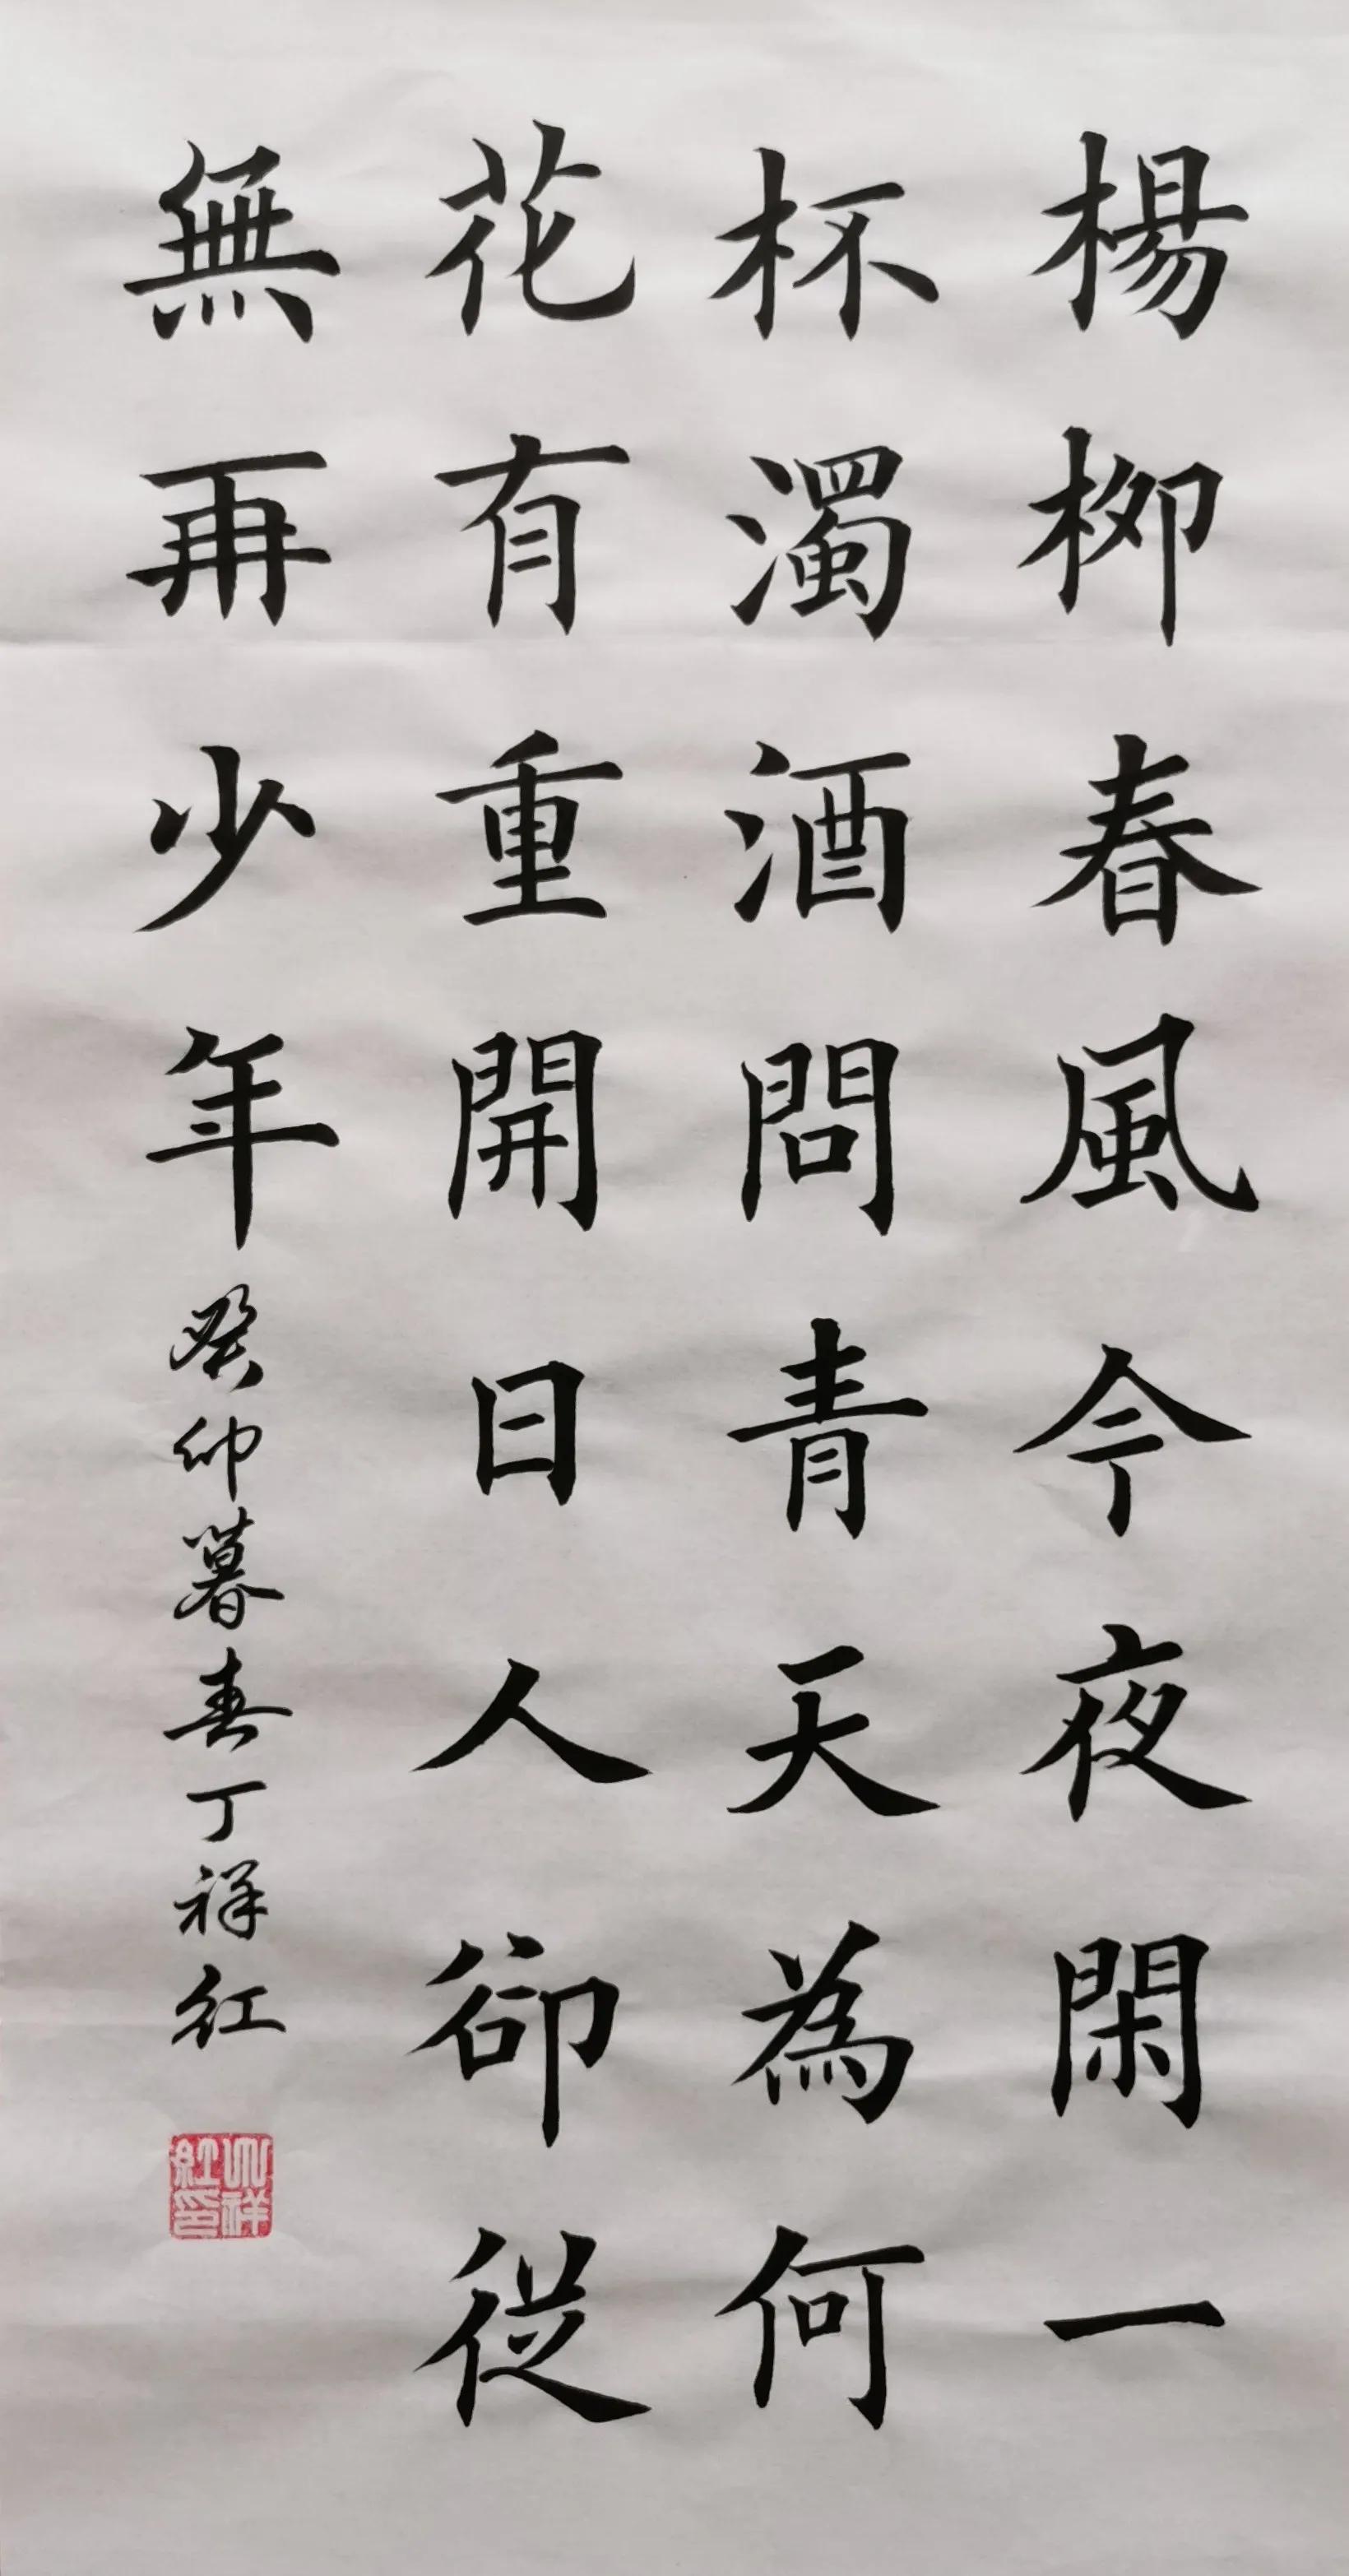 楊柳春風今夜閑一
杯濁酒問青天為何
花有重開日人卻從
無再少年
癸卯暮春丁祥紅
丁祥紅印